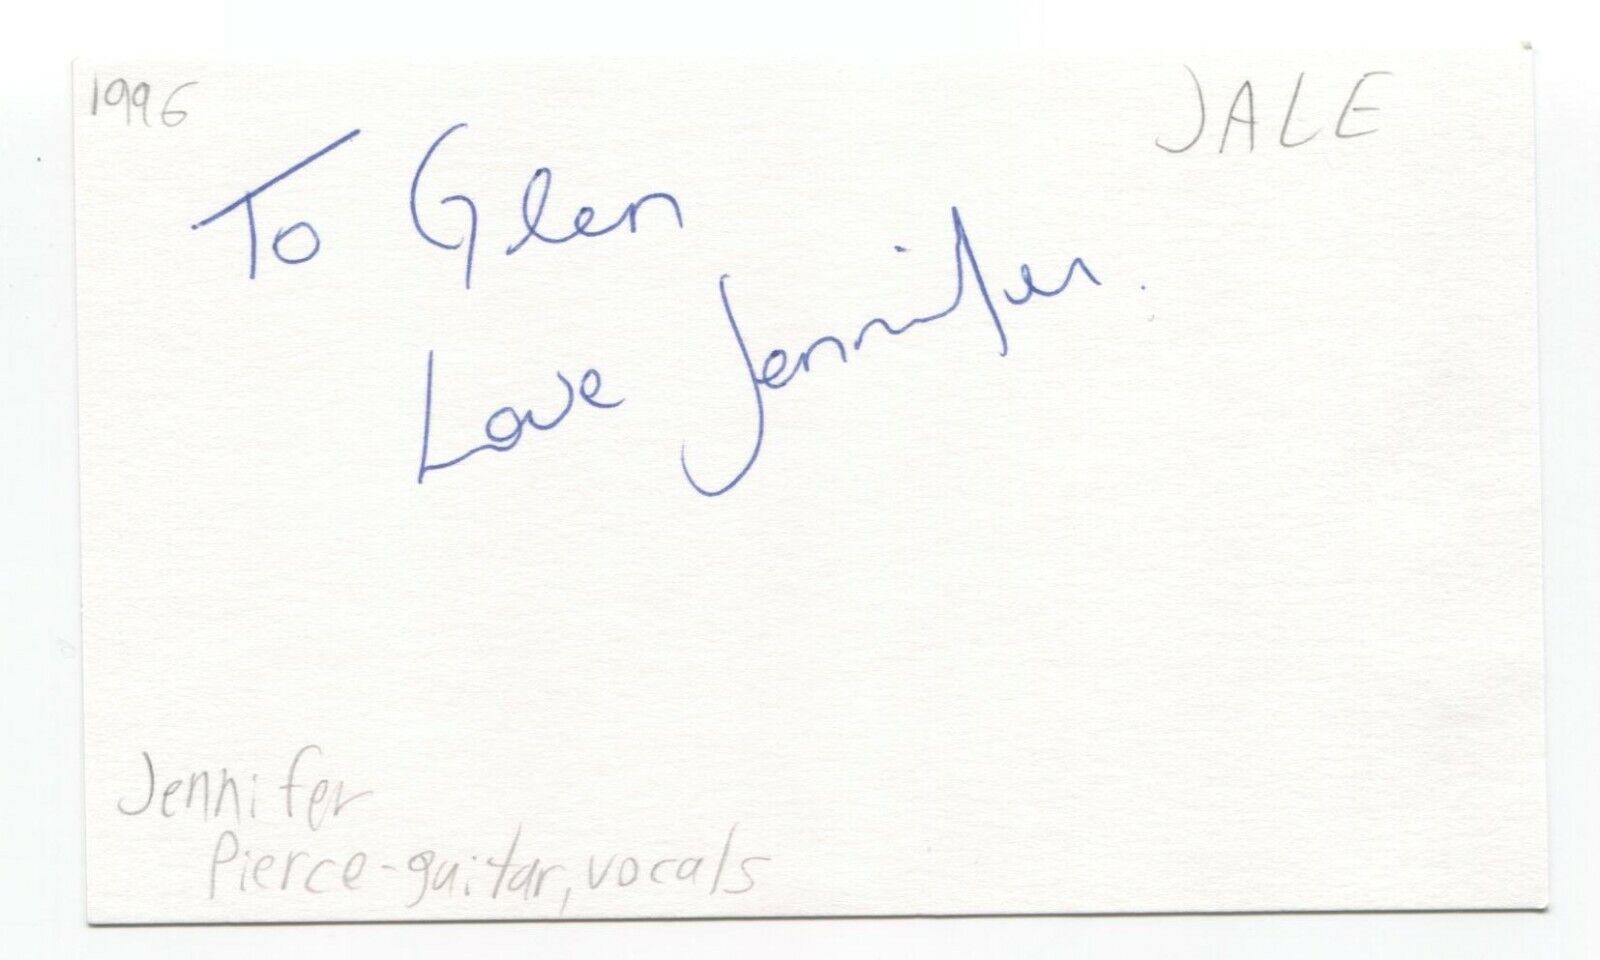 1996
JALE
To Glen
Love Jennifer.
Jennifer
Pierce-guitar, vocals